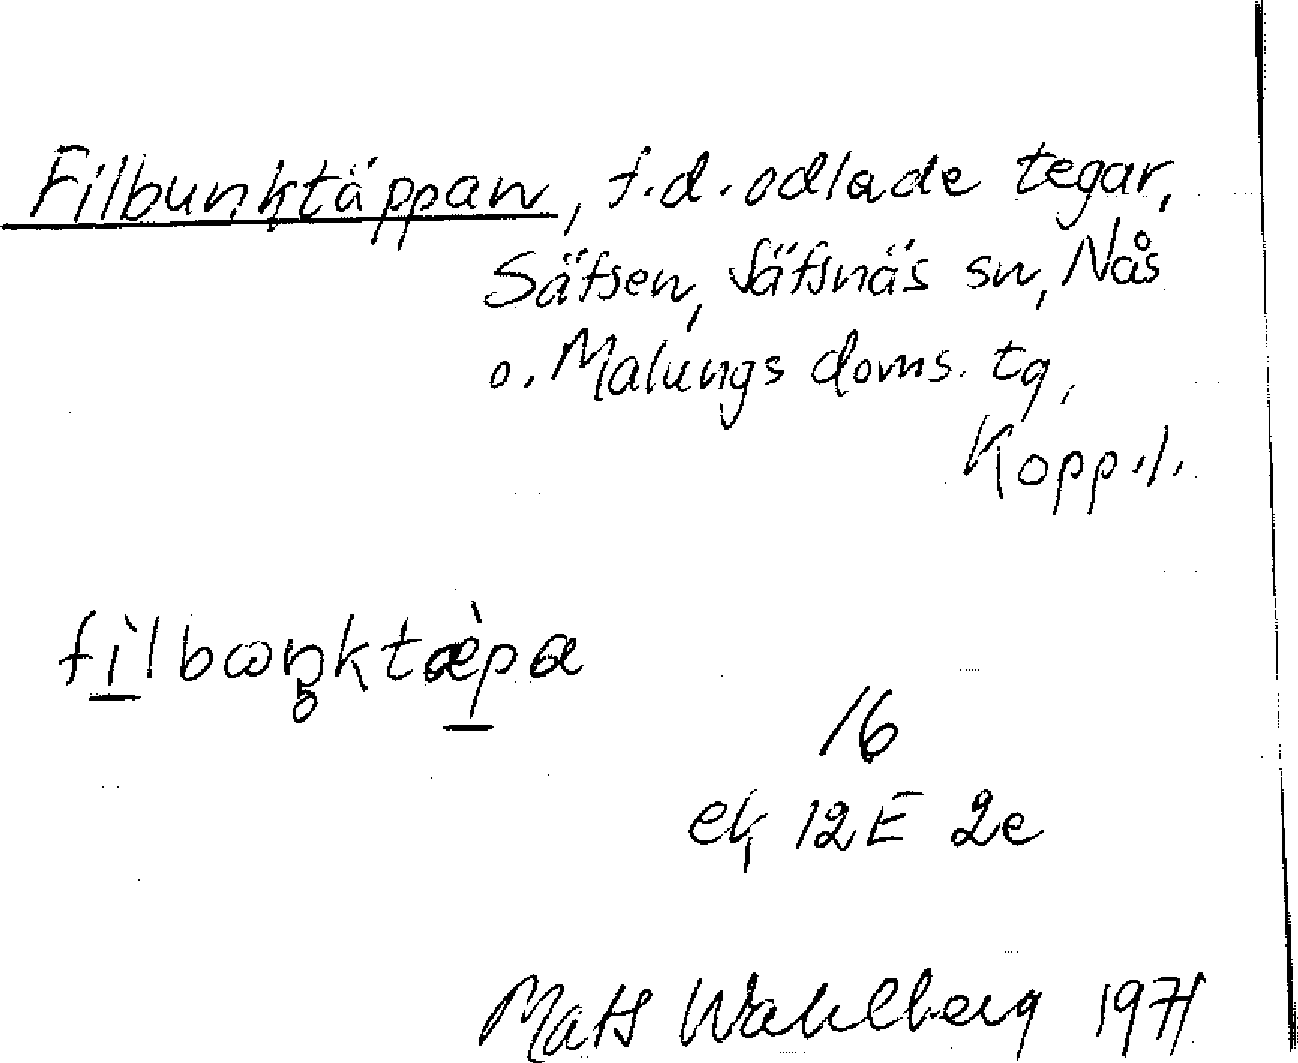 Filbunktäppan, f.d. odlade tegar,
Säfsen, Säfsnäs sn, Nås
o. Malungs doms. tg,
Kopp. l.
fìlbꞷŋktæ̀pa
16
ek 12E 2e
Mats Wahlberg 1971